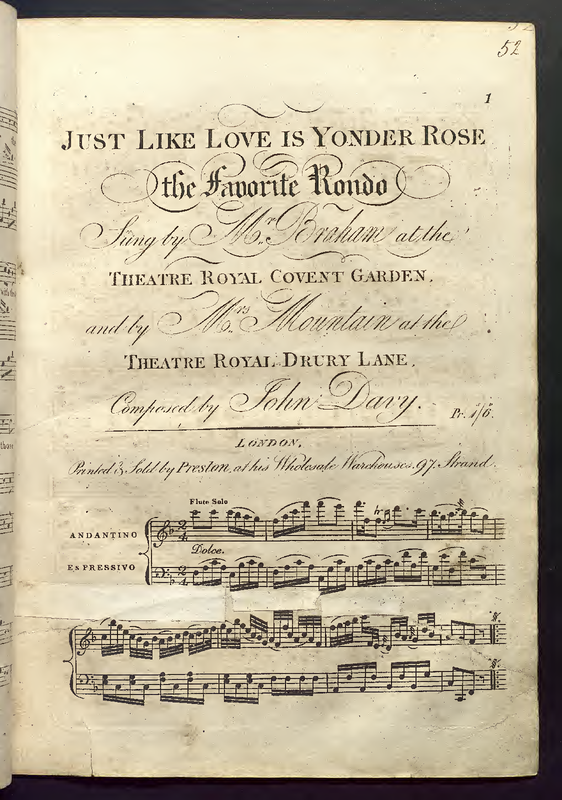 52
1
JUST LIKE LOVE IS YONDER ROSE
the Favorite Rondo
Sung by Mr. Braham at the
THEATRE ROYAL COVENT GARDEN.
and by Mrs. Mountain at the
THEATRE ROYAL DRURY LANE.
Composed by John Davy. Pr. 1/6.
LONDON,
Printed & Sold by Preston, at his Wholesale Warehouses, 97, Strand.
Flute Solo
ANDANTINO
2/4
tr
Dolce.
ESPRESSIVO
2/4